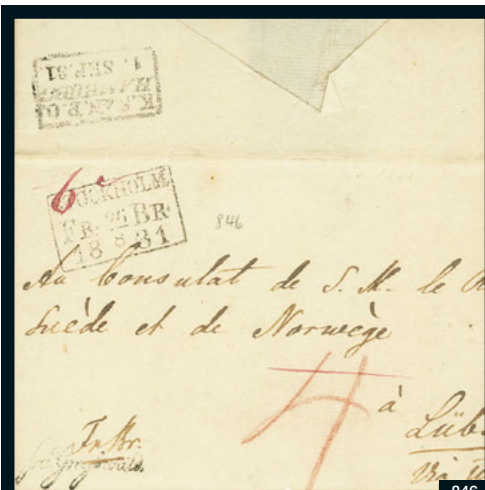 1. SEP. 31.
HAMBURG
K.S.&N.P.O.
6
STOCKHOLM
FR. 26 BR.
18 8 31
846
Au Consulat de S. M. le
Suède et de Norwège
4
à
Lüb
Fr. Br.
Via
846